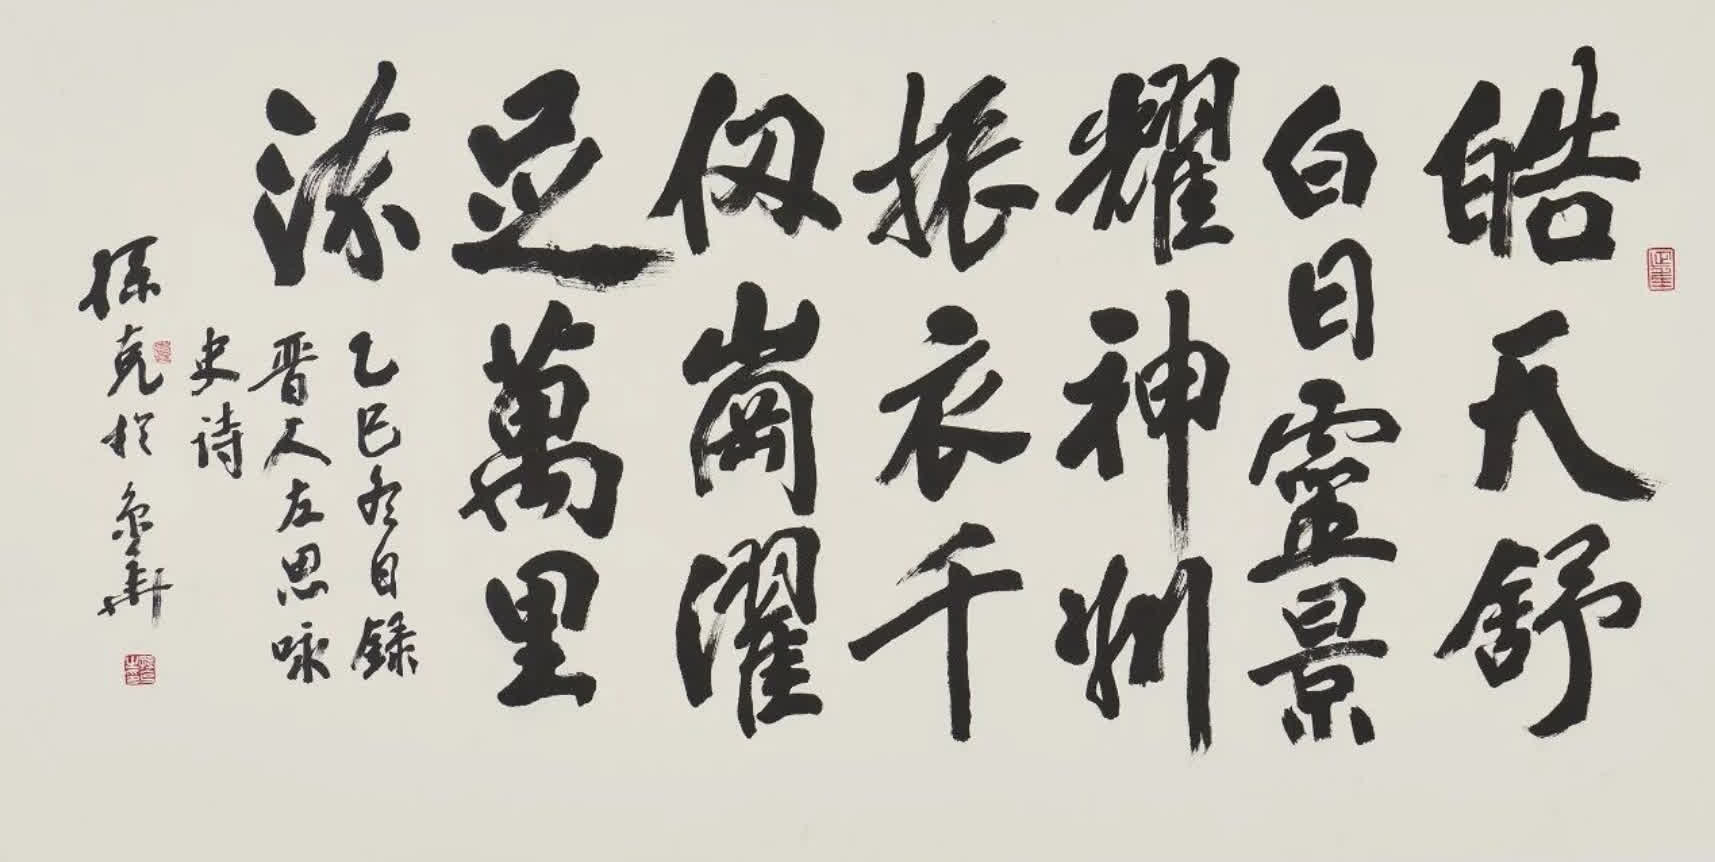 皓天舒
白日靈景
耀神州
振衣千
仞崗濯
足萬里
流
乙巳冬日録
晋人左思咏
史詩
孫克於